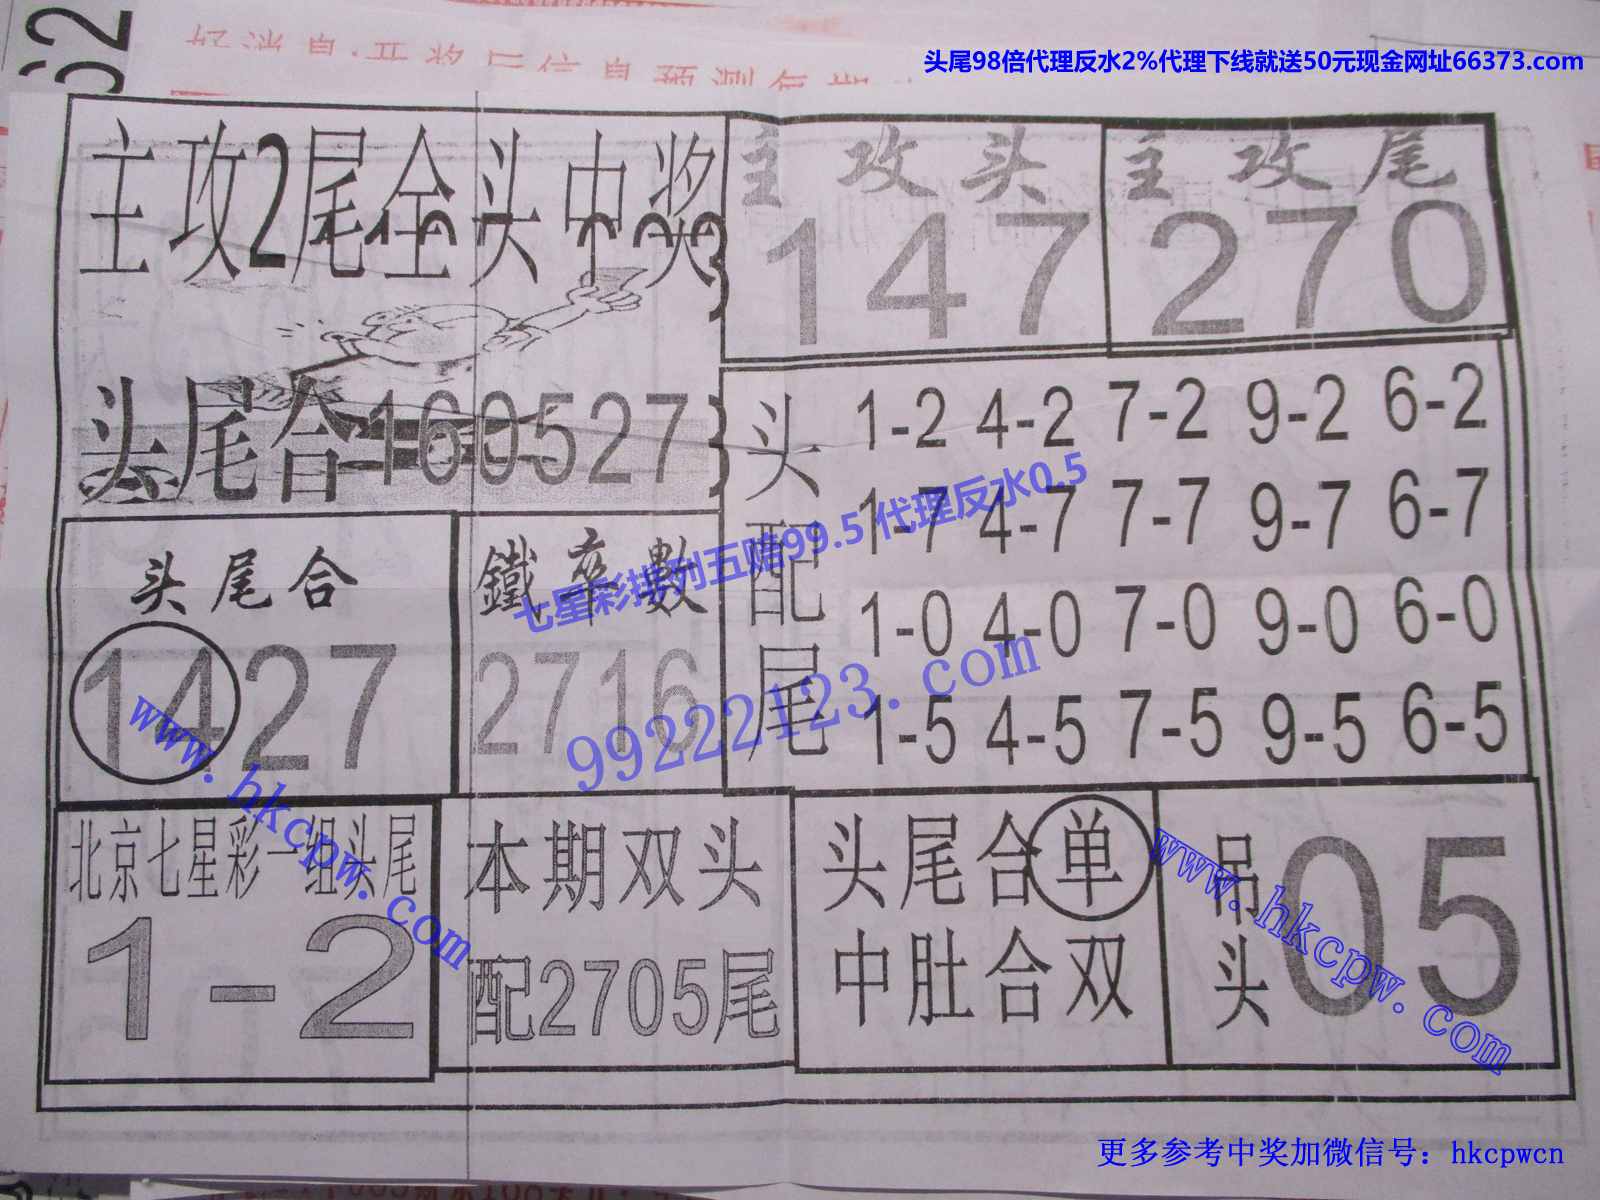 62
头尾98倍代理反水2%代理下线就送50元现金网址66373.com
主攻2尾全头中奖
主攻头
147
主攻尾
270
头尾合160527
头配尾
1-2 4-2 7-2 9-2 6-2
1-7 4-7 7-7 9-7 6-7
1-0 4-0 7-0 9-0 6-0
1-5 4-5 7-5 9-5 6-5
七星彩排列五赔99.5 代理反水0.5
99222123.com
头尾合
1427
鐵卒數
2716
www.hkcpw.com
北京七星彩一组头尾
1-2
本期双头
配2705尾
头尾合单
中肚合双
吊头
05
www.hkcpw.com
更多参考中奖加微信号：hkcpwcn